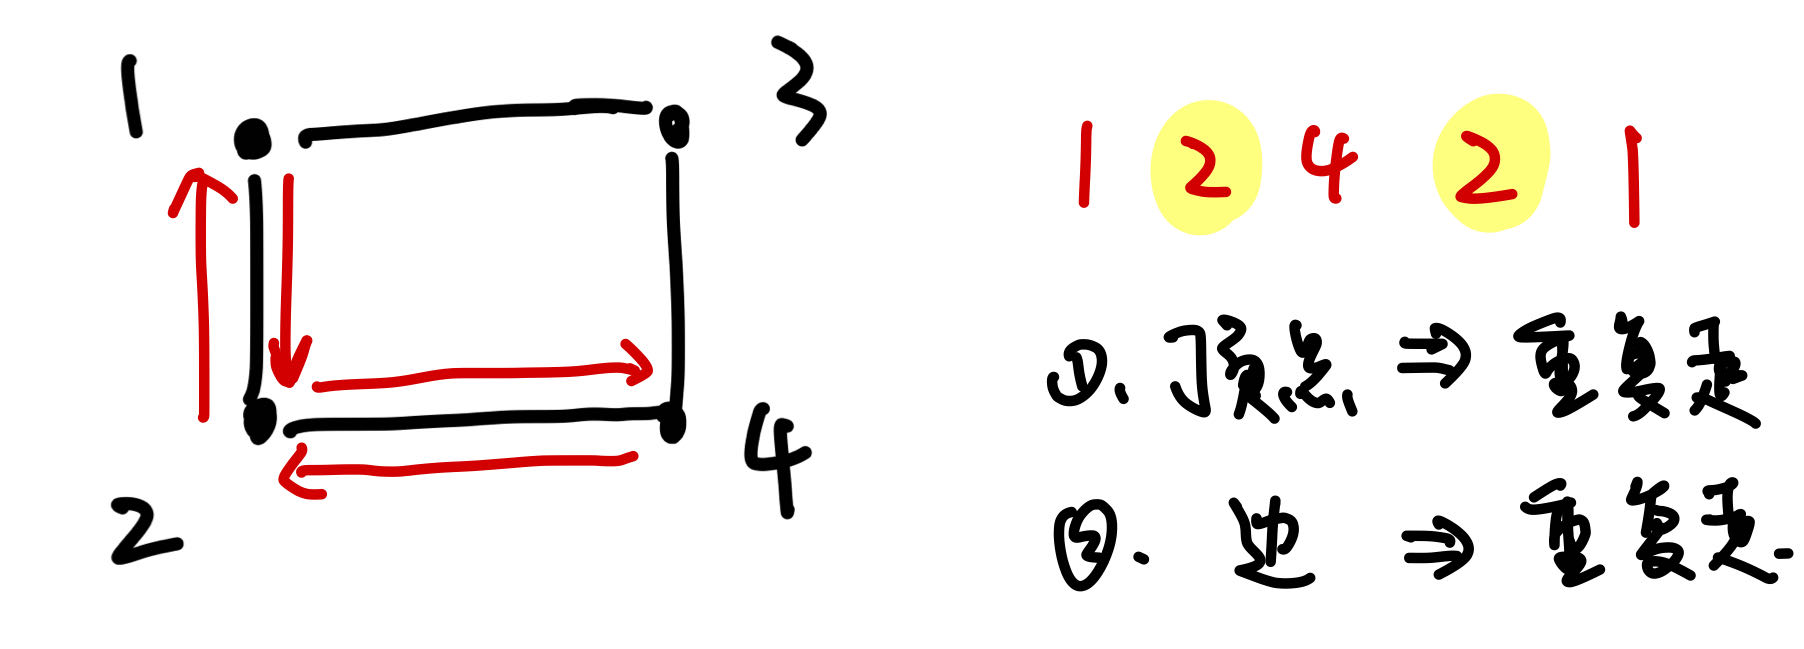 1 3
2 4
1 2 4 2 1
①. 顶点 ⇒ 重复走
②. 边 ⇒ 重复走.